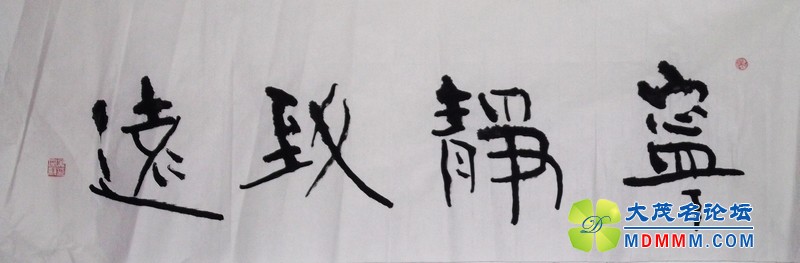 寧靜致遠
大茂名论坛
MDMMM.COM